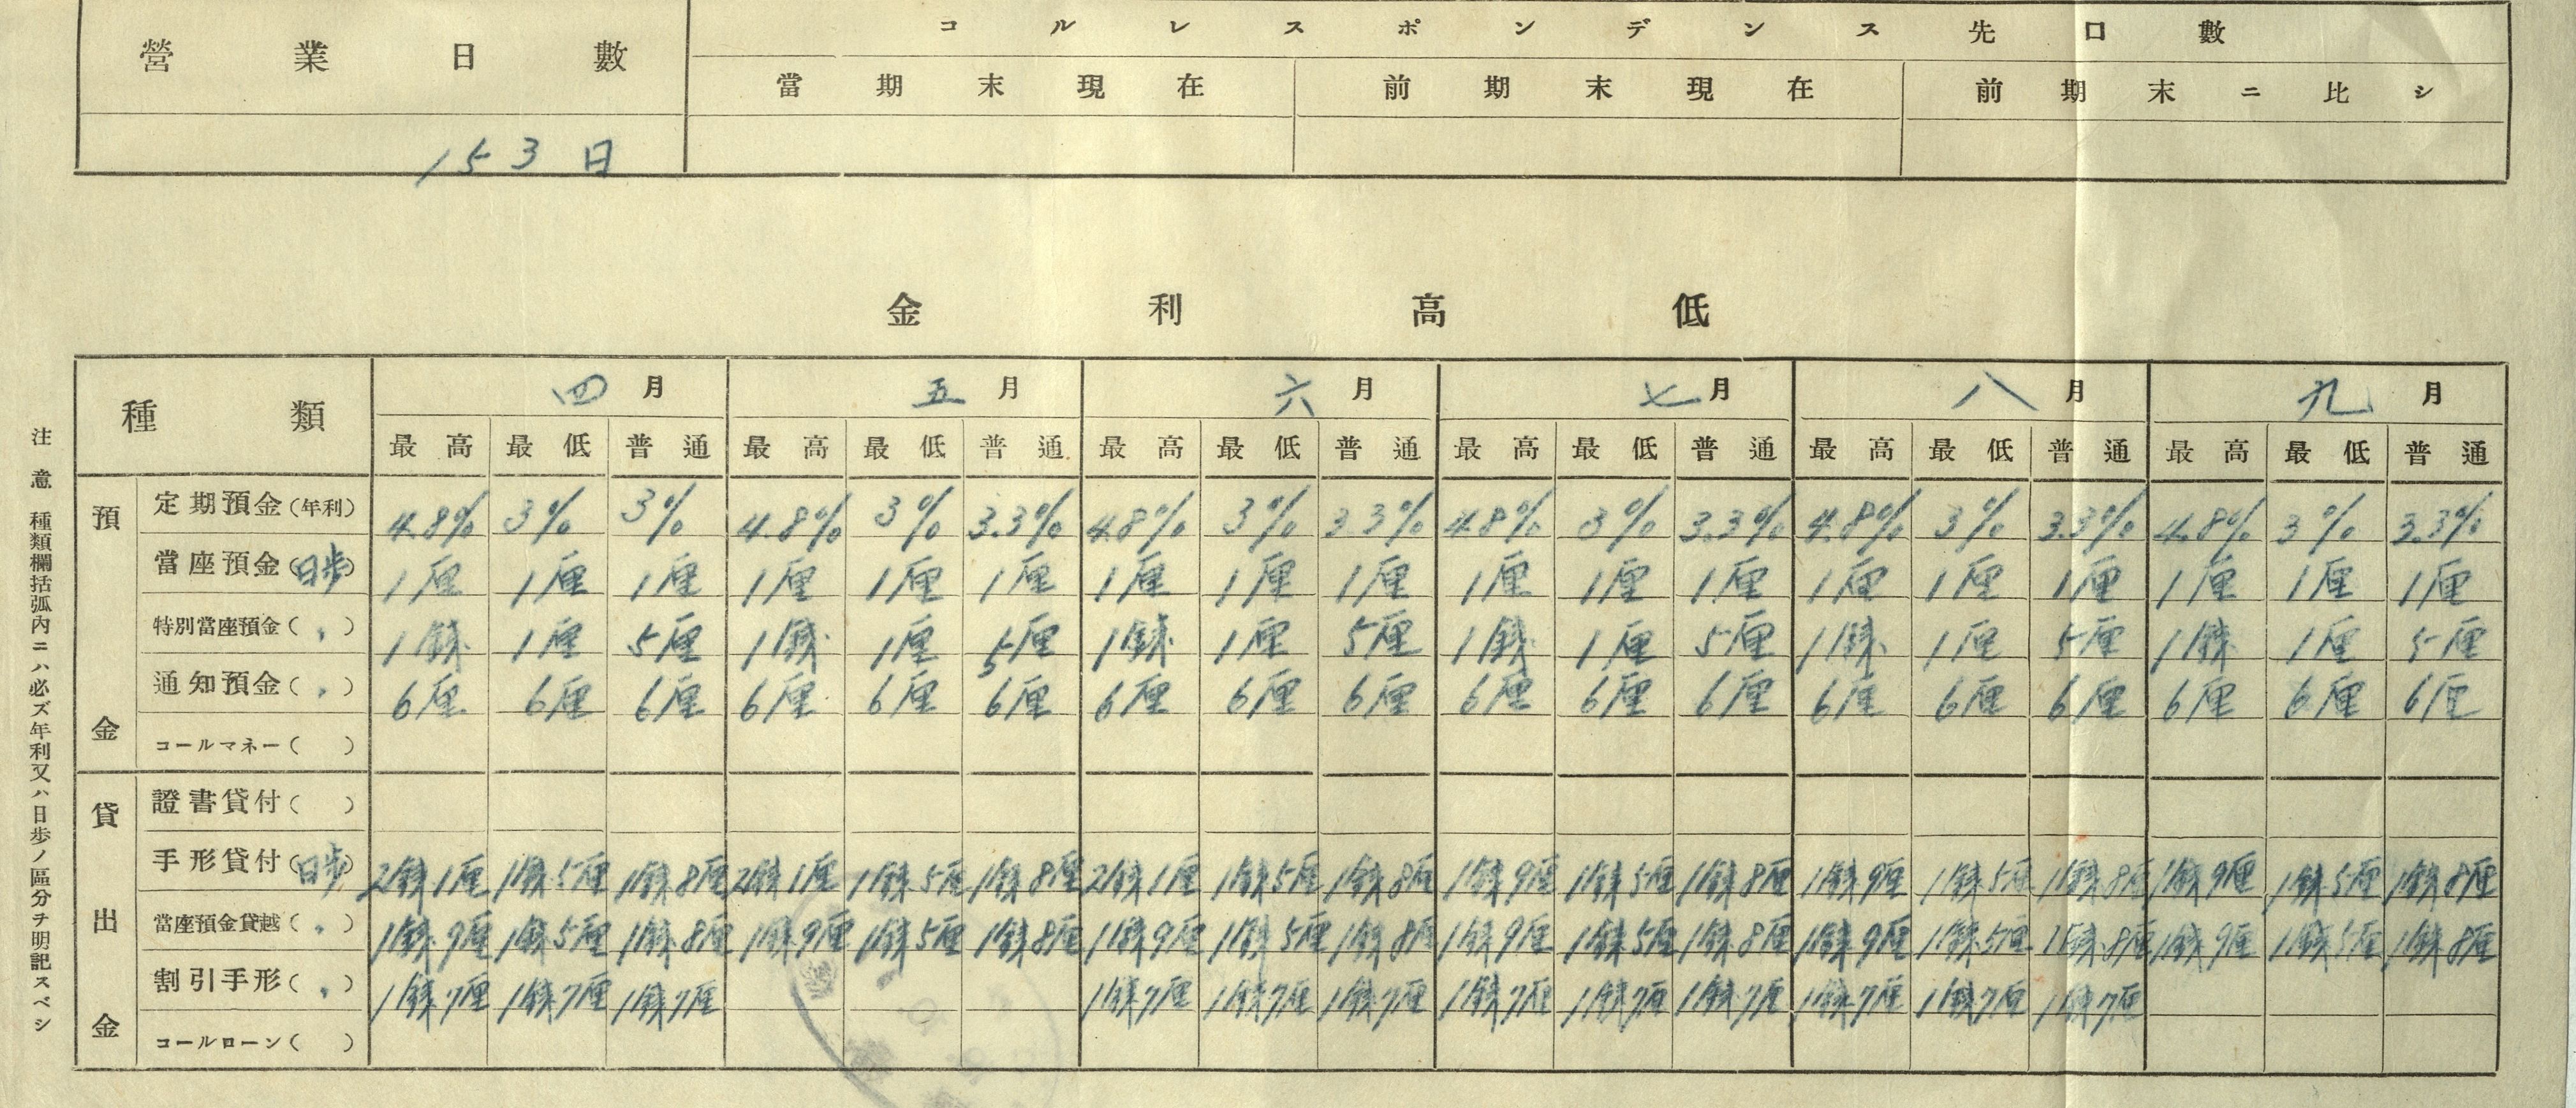 營業日數 コルレスポンデンス先口數
當期末現在 前期末現在 前期末ニ比シ
153日
金利高低
種類 四月 五月 六月 七月 八月 九月
最高 最低 普通 最高 最低 普通 最高 最低 普通 最高 最低 普通 最高 最低 普通 最高 最低 普通
預金
定期預金(年利) 4.8% 3% 3% 4.8% 3% 3.3% 4.8% 3% 3.3% 4.8% 3% 3.3% 4.8% 3% 3.3% 4.8% 3% 3.3%
當座預金(日歩) 1厘 1厘 1厘 1厘 1厘 1厘 1厘 1厘 1厘 1厘 1厘 1厘 1厘 1厘 1厘 1厘 1厘 1厘
特別當座預金(〃) 1錢 1厘 5厘 1錢 1厘 5厘 1錢 1厘 5厘 1錢 1厘 5厘 1錢 1厘 5厘 1錢 1厘 5厘
通知預金(〃) 6厘 6厘 6厘 6厘 6厘 6厘 6厘 6厘 6厘 6厘 6厘 6厘 6厘 6厘 6厘 6厘 6厘 6厘
コールマネー( )
貸出金
證書貸付( )
手形貸付(日歩) 2錢1厘 1錢5厘 1錢8厘 2錢1厘 1錢5厘 1錢8厘 2錢1厘 1錢5厘 1錢8厘 1錢9厘 1錢5厘 1錢8厘 1錢9厘 1錢5厘 1錢8厘 1錢9厘 1錢5厘 1錢8厘
當座預金貸越(〃) 1錢9厘 1錢5厘 1錢8厘 1錢9厘 1錢5厘 1錢8厘 1錢9厘 1錢5厘 1錢8厘 1錢9厘 1錢5厘 1錢8厘 1錢9厘 1錢5厘 1錢8厘 1錢9厘 1錢5厘 1錢8厘
割引手形(〃) 1錢7厘 1錢7厘 1錢7厘 1錢7厘 1錢7厘 1錢7厘 1錢7厘 1錢7厘 1錢7厘 1錢7厘 1錢7厘 1錢7厘
コールローン( )
注意 種類欄括弧內ニハ必ズ年利又ハ日歩ノ區分ヲ明記スベシ